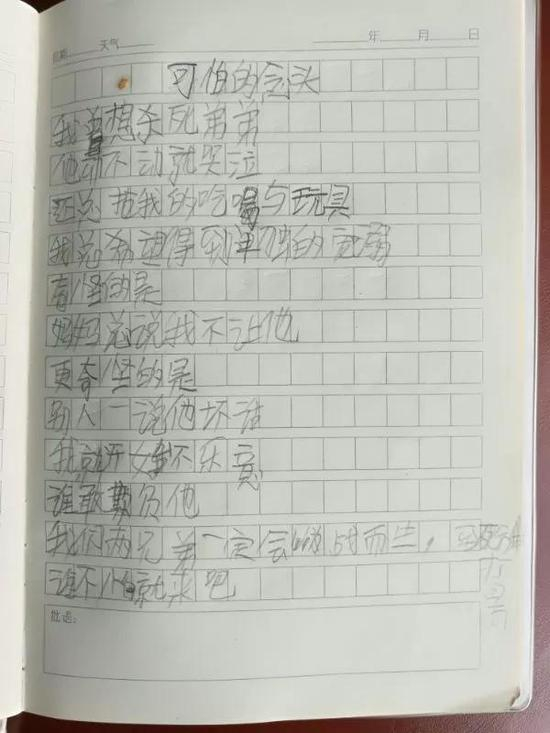 日期 天气 年 月 日
可怕的念头
我总想杀死弟弟
他动不动就哭泣
还总抢我的吃喝与玩具
我总希望得到单独的宠溺
奇怪的是
妈妈总说我不让他
更奇怪的是
别人一说他坏话
我就开始不乐意
谁敢欺负他
我们两兄弟一定会 时而出,
谁不怕就来吧
批语: